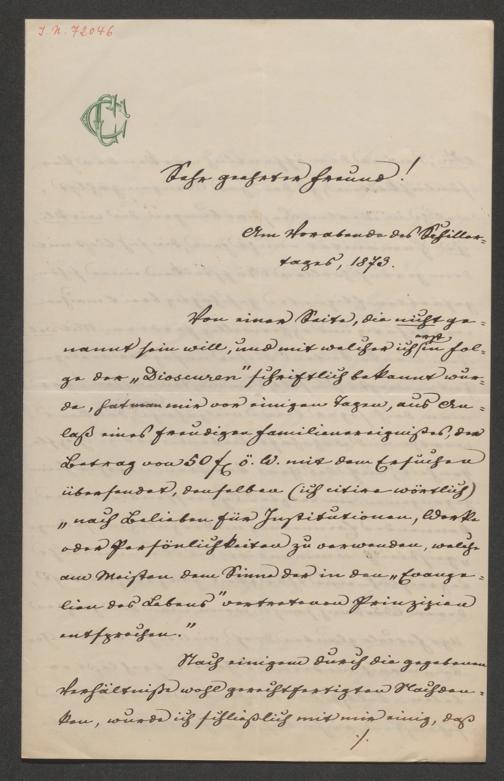 J. N. 72046
Sehr geehrter Freund!
Am Vorabende des Schiller-
tages, 1873.
Von einer Seite, die nicht ge-
nannt sein will, und mit welcher ich erst in Fol-
ge der „Dioscuren" schriftlich bekannt wur-
de, hat man mir vor einigen Tagen, aus An-
laß eines freudigen Familienereignißes, den
Betrag von 50 f ö. W. mit dem Ersuchen
übersendet, denselben (ich citire wörtlich)
„nach Belieben für Institutionen, Werke
oder Persönlichkeiten zu verwenden, welche
am Meisten dem Sinne der in den „Evange-
lien des Lebens" vertretenen Prinzipien
entsprechen."
Nach einigem durch die gegebenen
Verhältniße wohl gerechtfertigten Nachden-
ken, wurde ich schließlich mit mir einig, daß
./.